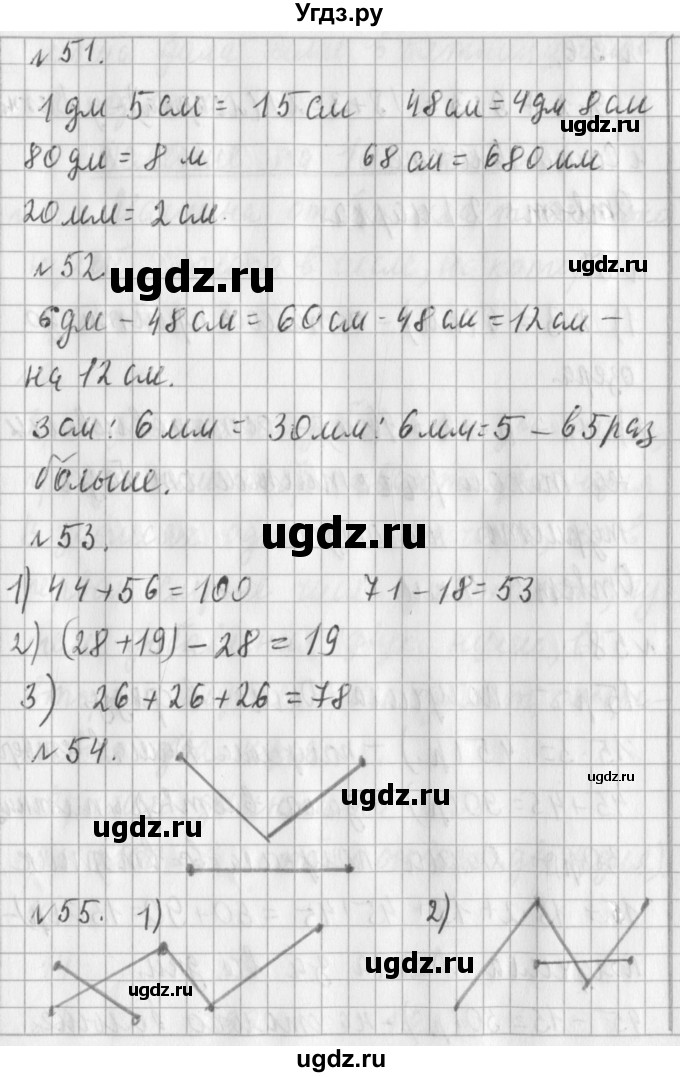 Угдз.ру
№51.
1 дм 5 см = 15 см 48 см = 4 дм 8 см
ugdz.ru
80 дм = 8 м 68 см = 680 мм
20 мм = 2 см.
№52.
ugdz.ru ugdz.ru
6 дм - 48 см = 60 см - 48 см = 12 см -
на 12 см.
3 см : 6 мм = 30 мм : 6 мм = 5 - в 5 раз
больше.
ugdz.ru
№53.
1) 44 + 56 = 100 71 - 18 = 53
2) (28 + 19) - 28 = 19
3) 26 + 26 + 26 = 78
№54.
ugdz.ru
ugdz.ru
ugdz.ru
№55. 1) 2)
ugdz.ru
ugdz.ru
ugdz.ru